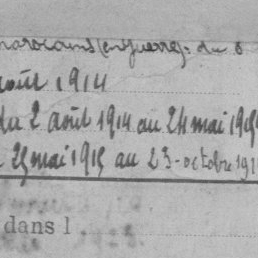 marocains (en guerre). du 8
août 1914
du 2 août 1914 au 24 mai 1915
25 mai 1915 au 23 octobre 191
dans l